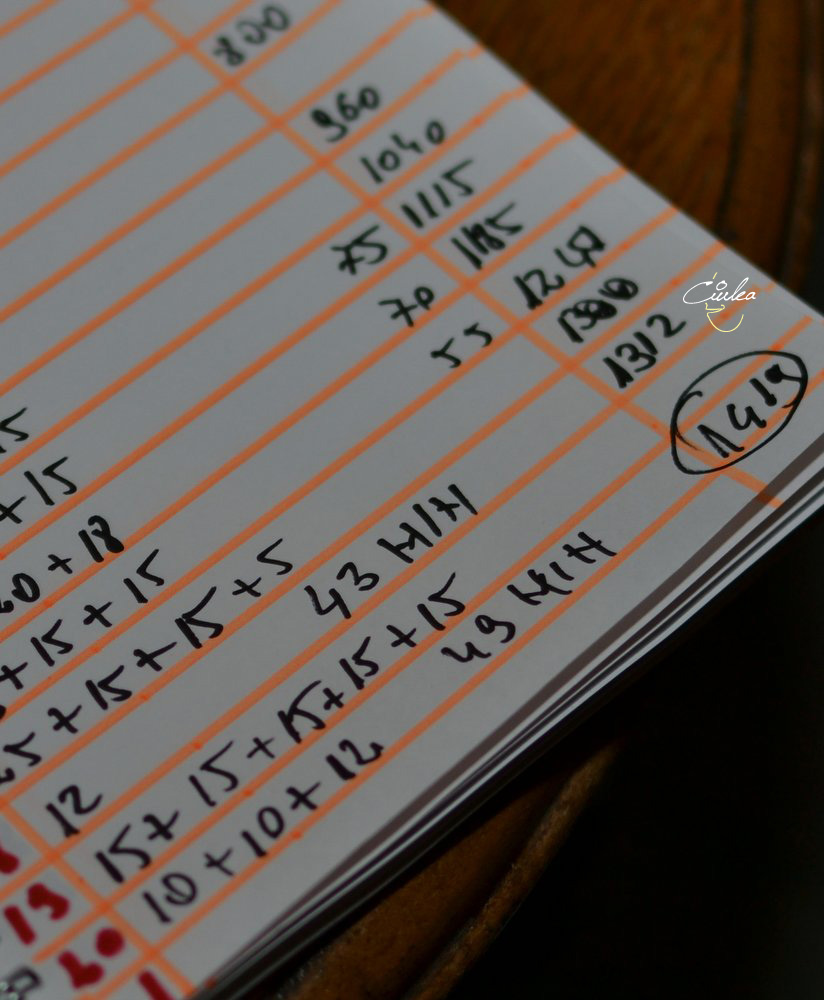 800
960
1040
75 1115
70 1185
55 1240
1300
1312
1419
15
+ 15
+ 18
+ 15 + 15
+ 15 + 15 + 5
12 43 MIN
15 + 15 + 15 + 15 + 15
10 + 10 + 12 49 MIN
19
20
1
Ciulea